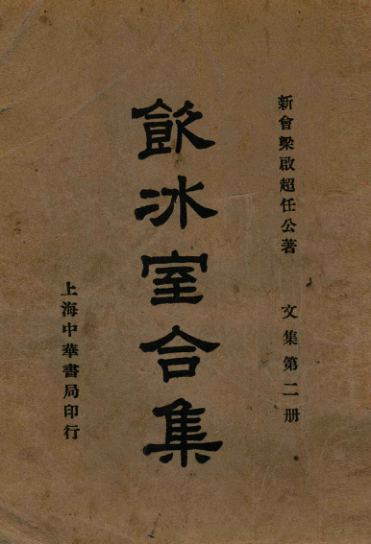 新會梁啟超任公著 文集第二册
飲冰室合集
上海中華書局印行